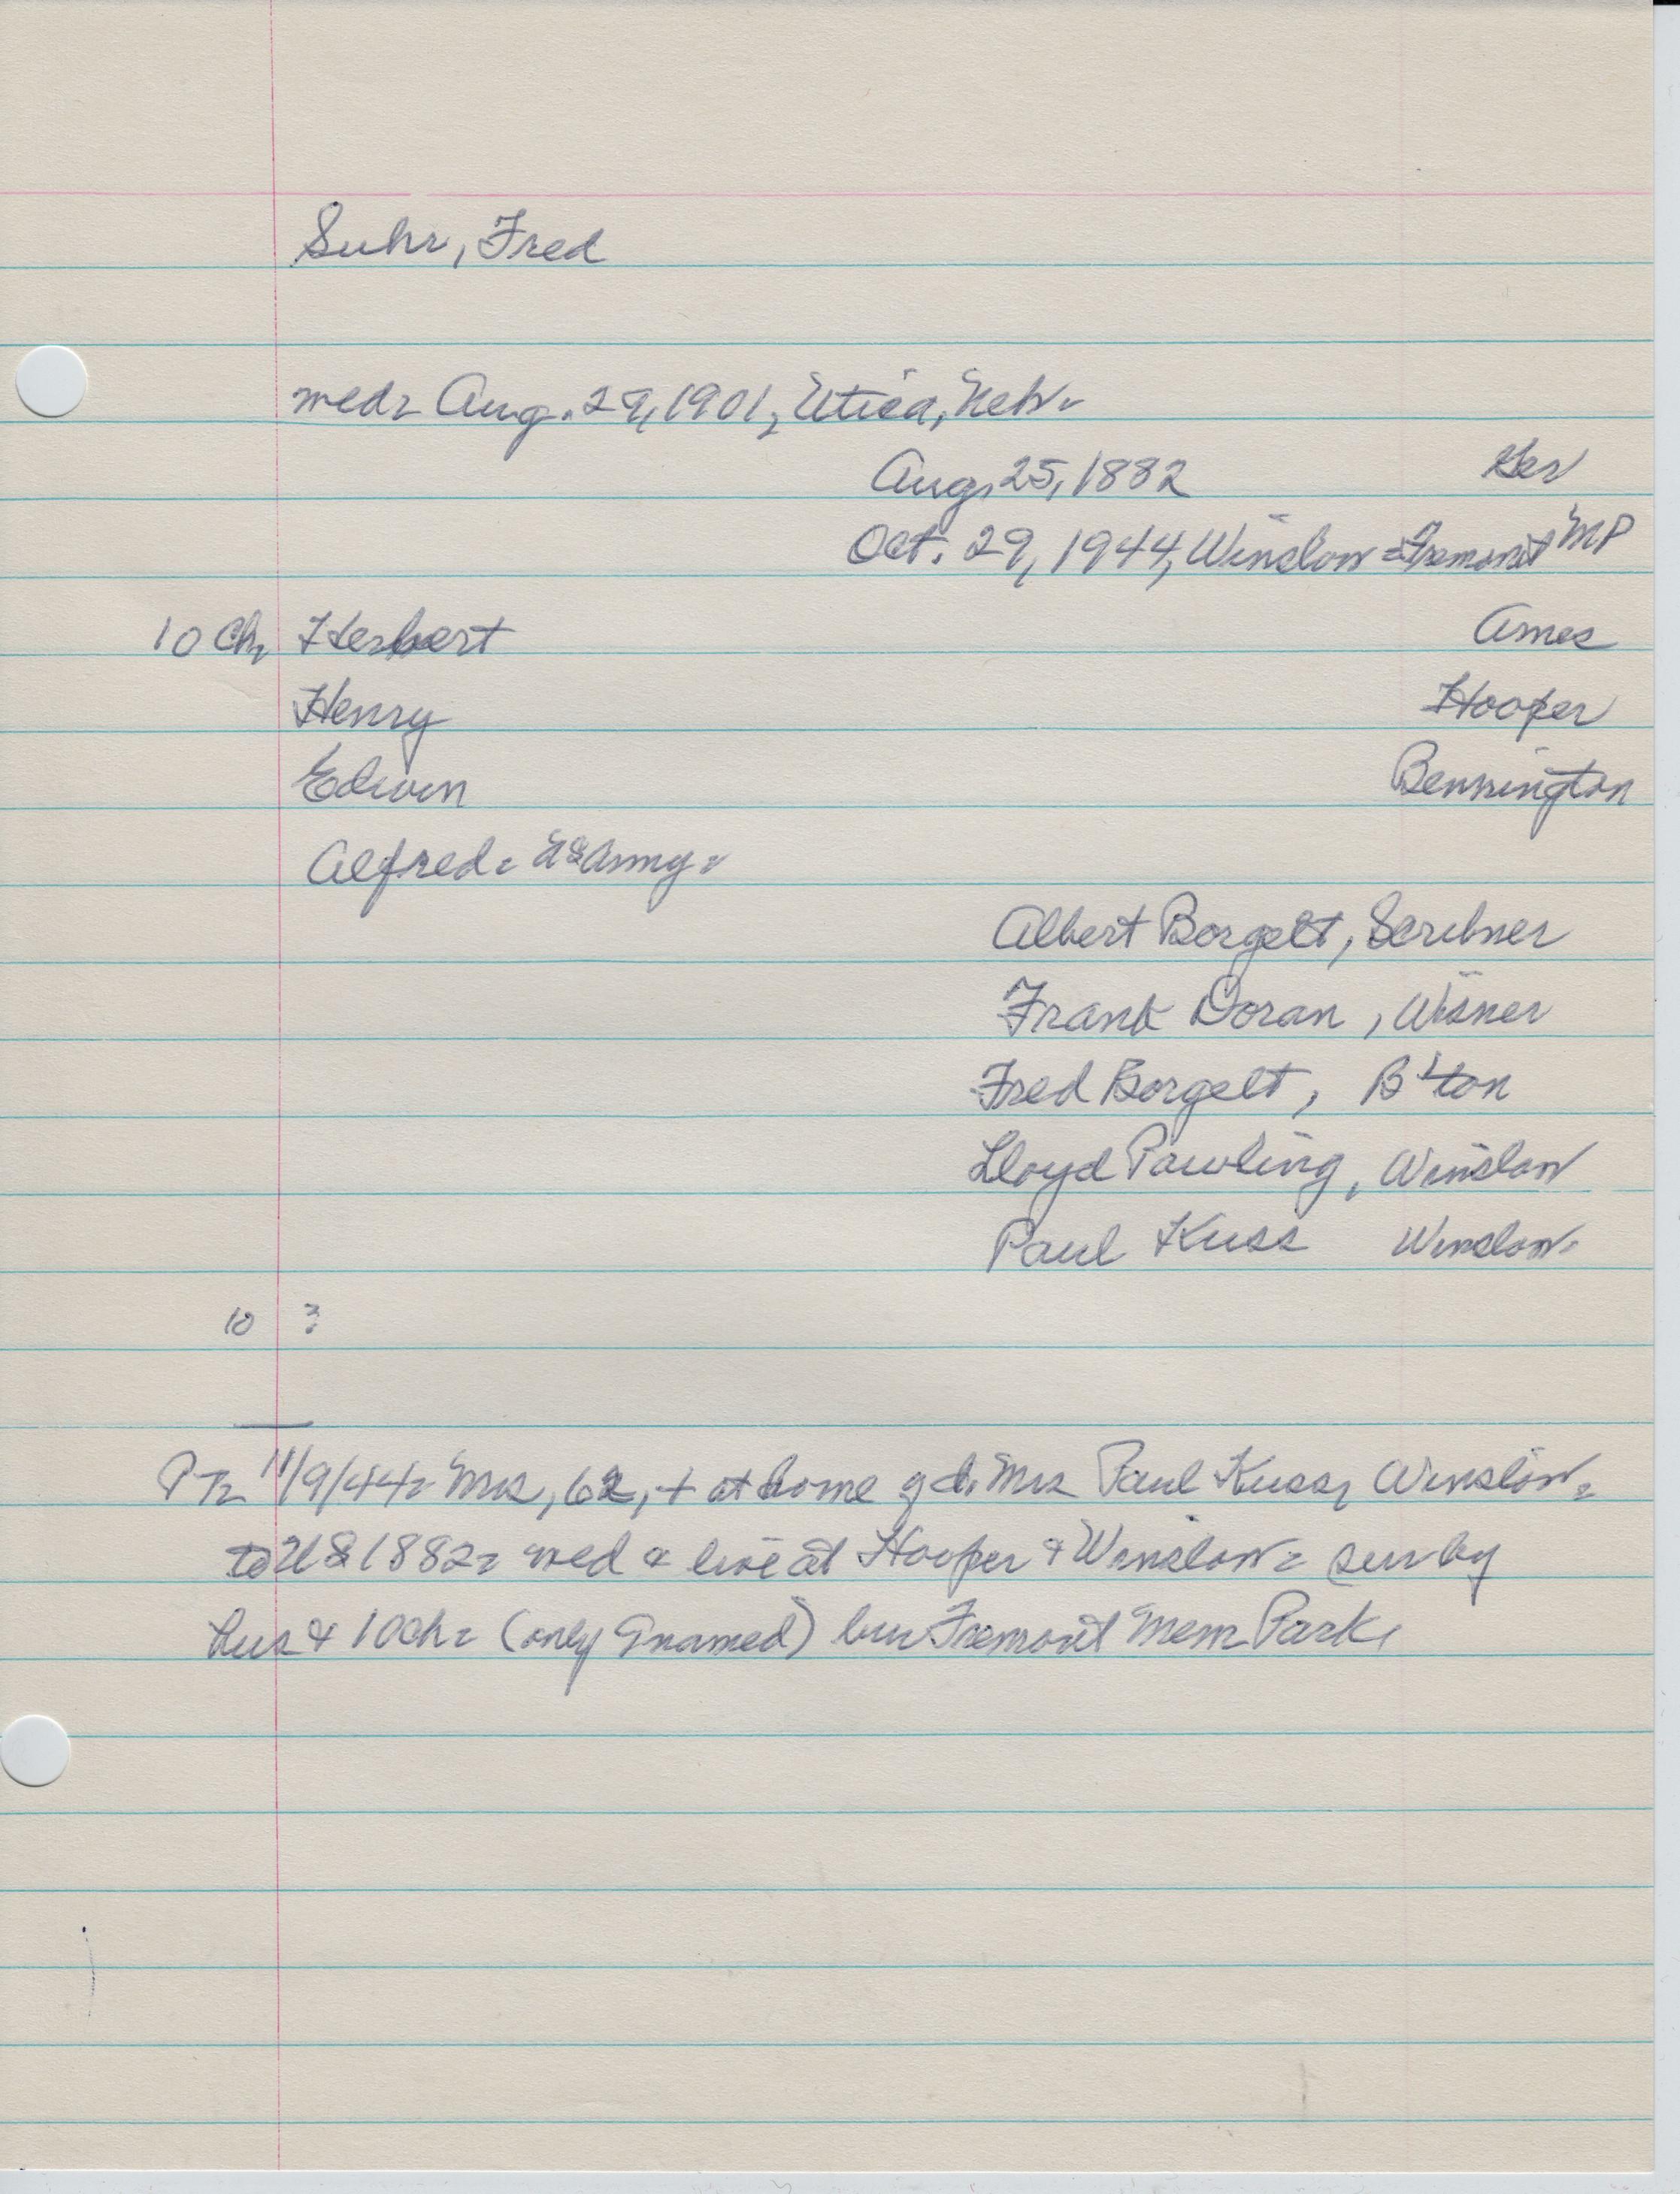 Suhr, Fred
med- Aug. 29, 1901, Utica, Nebr-
Aug. 25, 1882 Ger
Oct. 29, 1944, Winslow = Fremont MP
10 Ch- Herbert Ames
Henry Hooper
Edwin Bennington
Alfred = US Army =
Albert Borgelt, Scribner
Frank Doran, Wisner
Fred Borgelt, B'ton
Lloyd Pawling, Winslow
Paul Kuss Winslow-
10 ?
11/9/44= Mrs, 62, + at home of d. Mrs Paul Kuss, Winslow=
to US 1882= med & live at Hooper & Winslow= sur by
hus & 10 ch= (only 9 named) bur Fremont Mem Park,